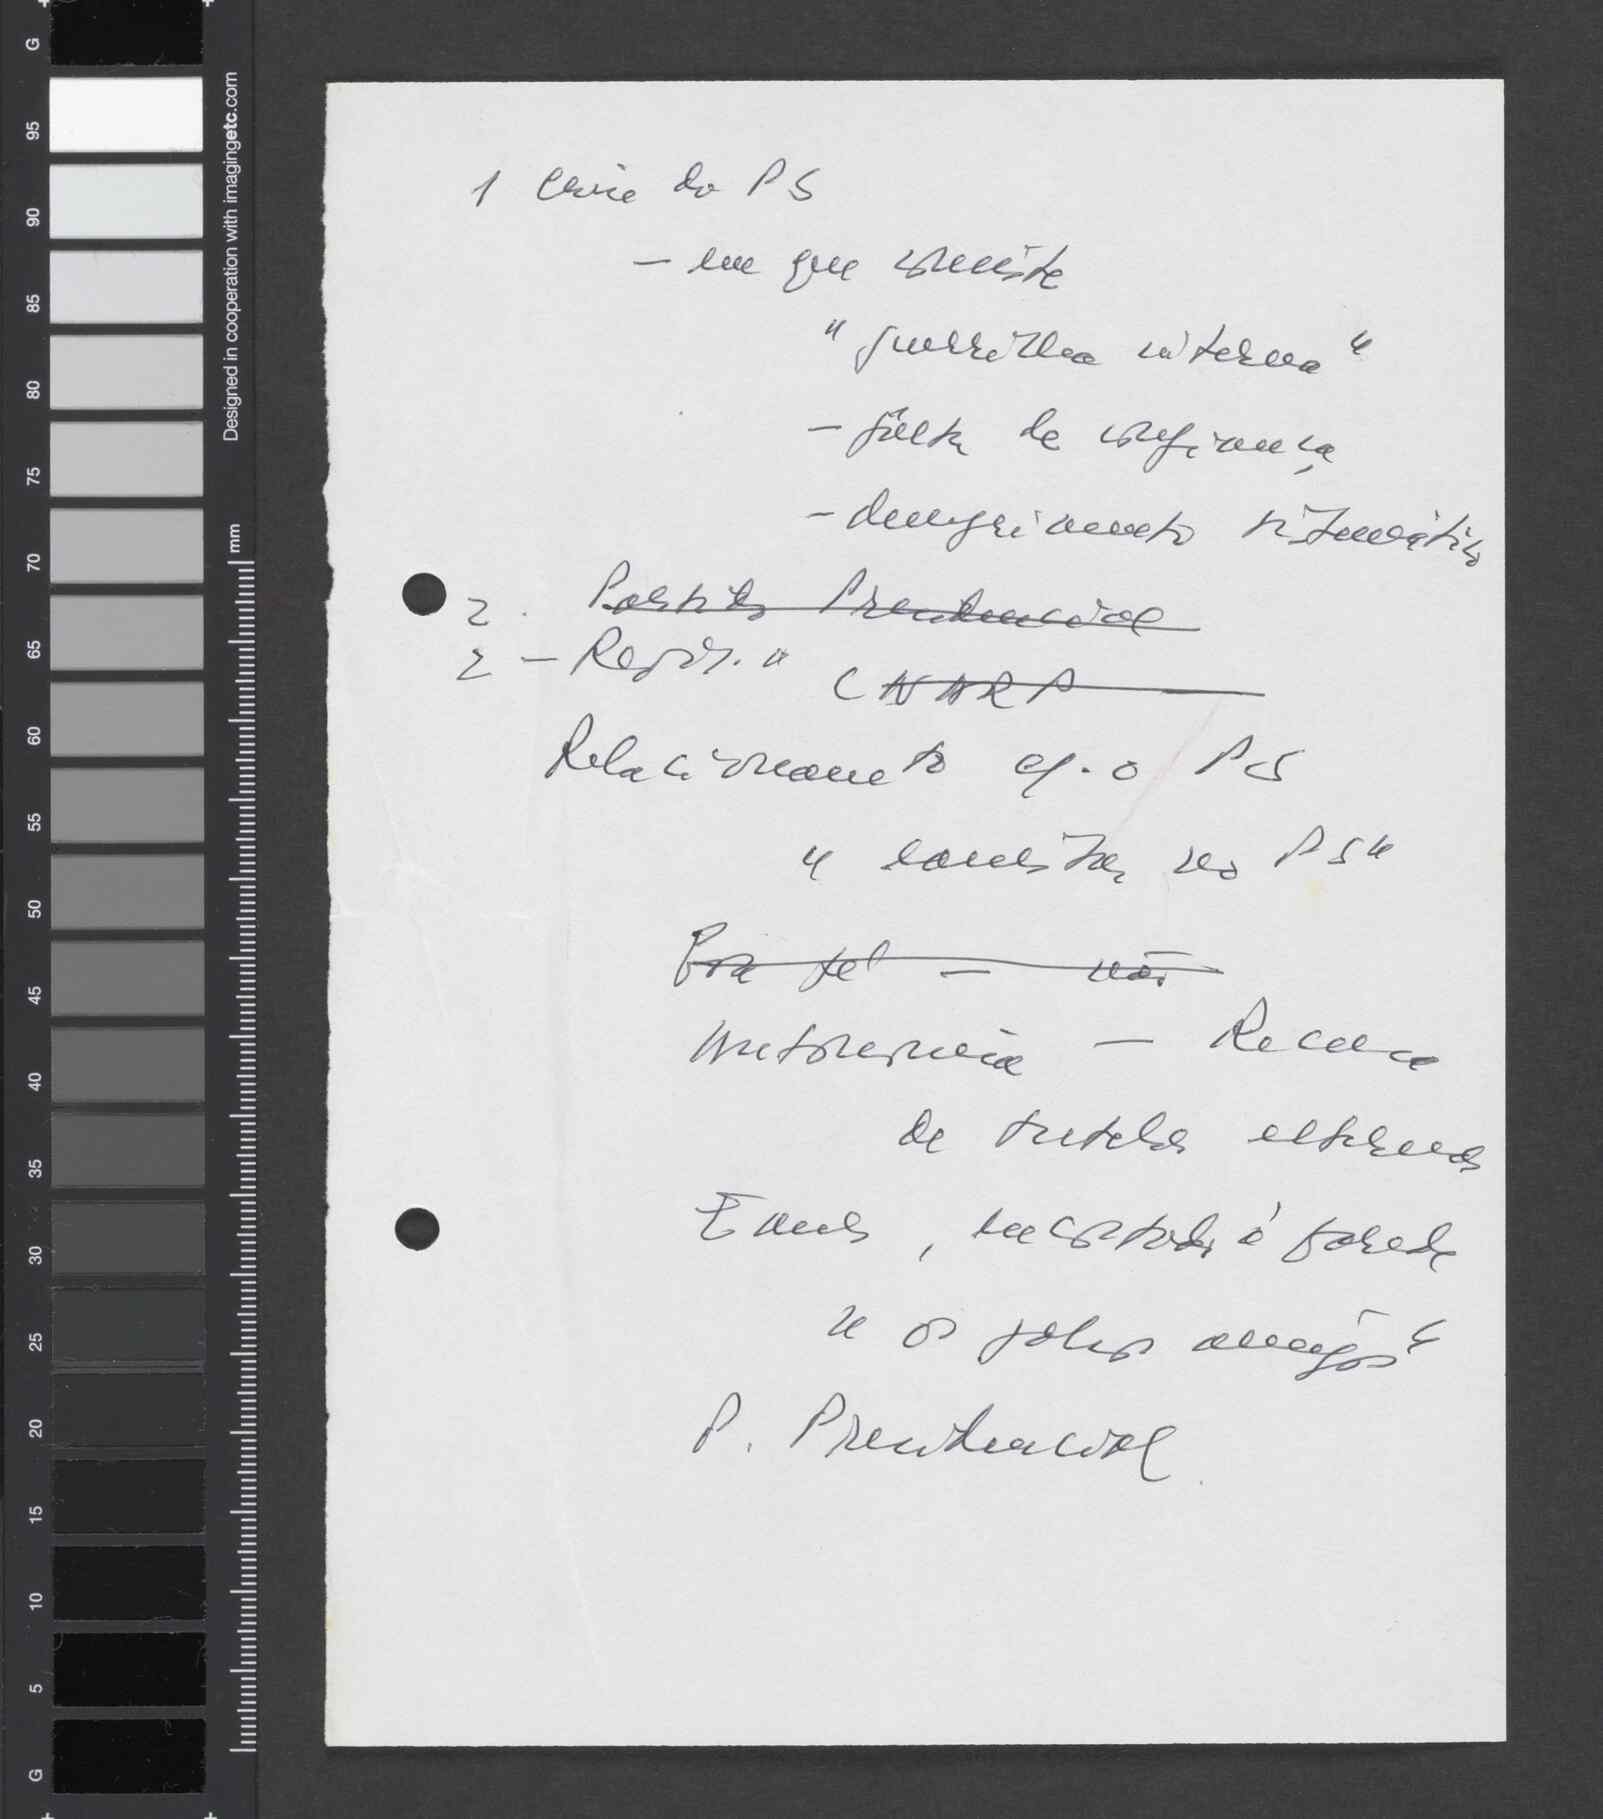 1 Crise do PS
- em que consiste
"guerrilha interna"
- falta de confiança
- denegrimento sistemático
2. Partido Presidencial
2 - 
CNARP
Relacionamento c/. o PS
"eanistas no PS"
não
Autonomia - Recusa
de tutelas externas
Eanes, encostado à parede
"os falsos amigos"
P. Presidencial
G
95
90
85
80
75
70
65
60
55
50
45
40
35
30
25
20
15
10
5
G
Designed in cooperation with imagingetc.com
mm